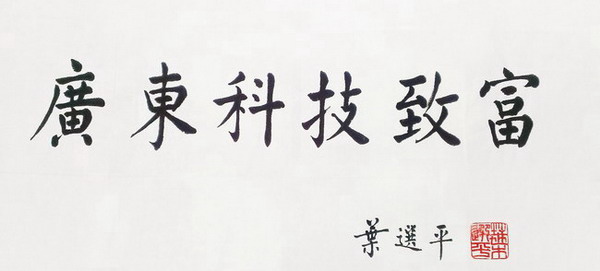 廣東科技致富
葉選平